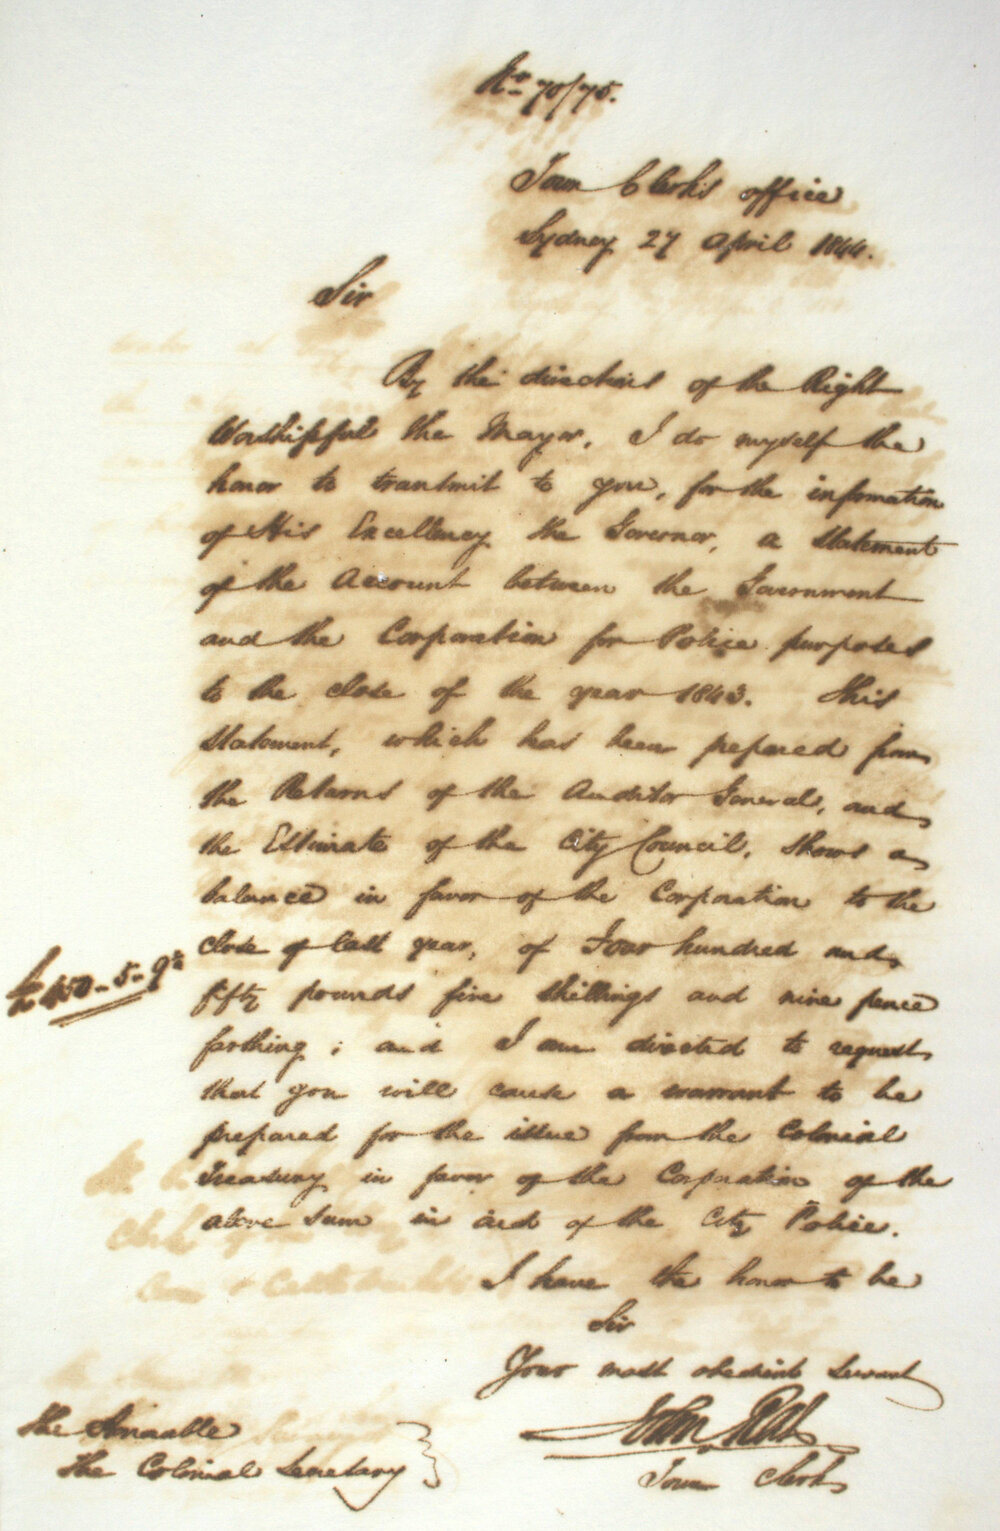 No 70/75.
Town Clerk's office
Sydney 27 April 1844.
Sir
By the directions of the Right
Worshipful the Mayor, I do myself the
honor to transmit to you, for the information
of His Excellency the Governor, a Statement
of the Account between the Government
and the Corporation for Police purposes
to the close of the year 1843. This
Statement, which has been prepared from
the Returns of the Auditor General, and
the Estimate of the City Council, shows a
balance in favor of the Corporation to the
close of last year, of Four hundred and
£450-5-9¼
fifty pounds five shillings and nine pence
farthing; and I am directed to request
that you will cause a warrant to be
prepared for the issue from the Colonial
Treasury in favor of the Corporation of the
above sum in aid of the City Police.
I have the honor to be
Sir
Your most obedient Servant
John
Town Clerk
The Honorable
The Colonial Secretary